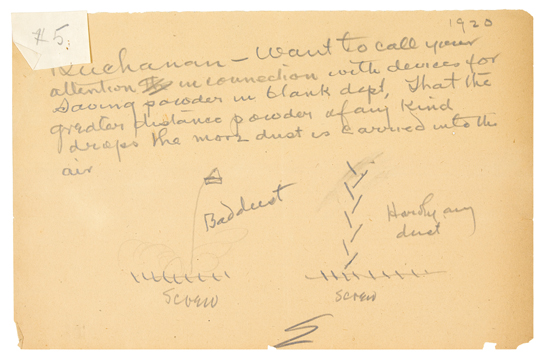 1920
#5.
Buchanan - Want to call your
attention in connection with devices for
Saving powder in blank dept, That the
greater distance powder of any Kind
drops the more dust is carried into the
air
Bad dust
Hardly any
dust
Screw
Screw
E